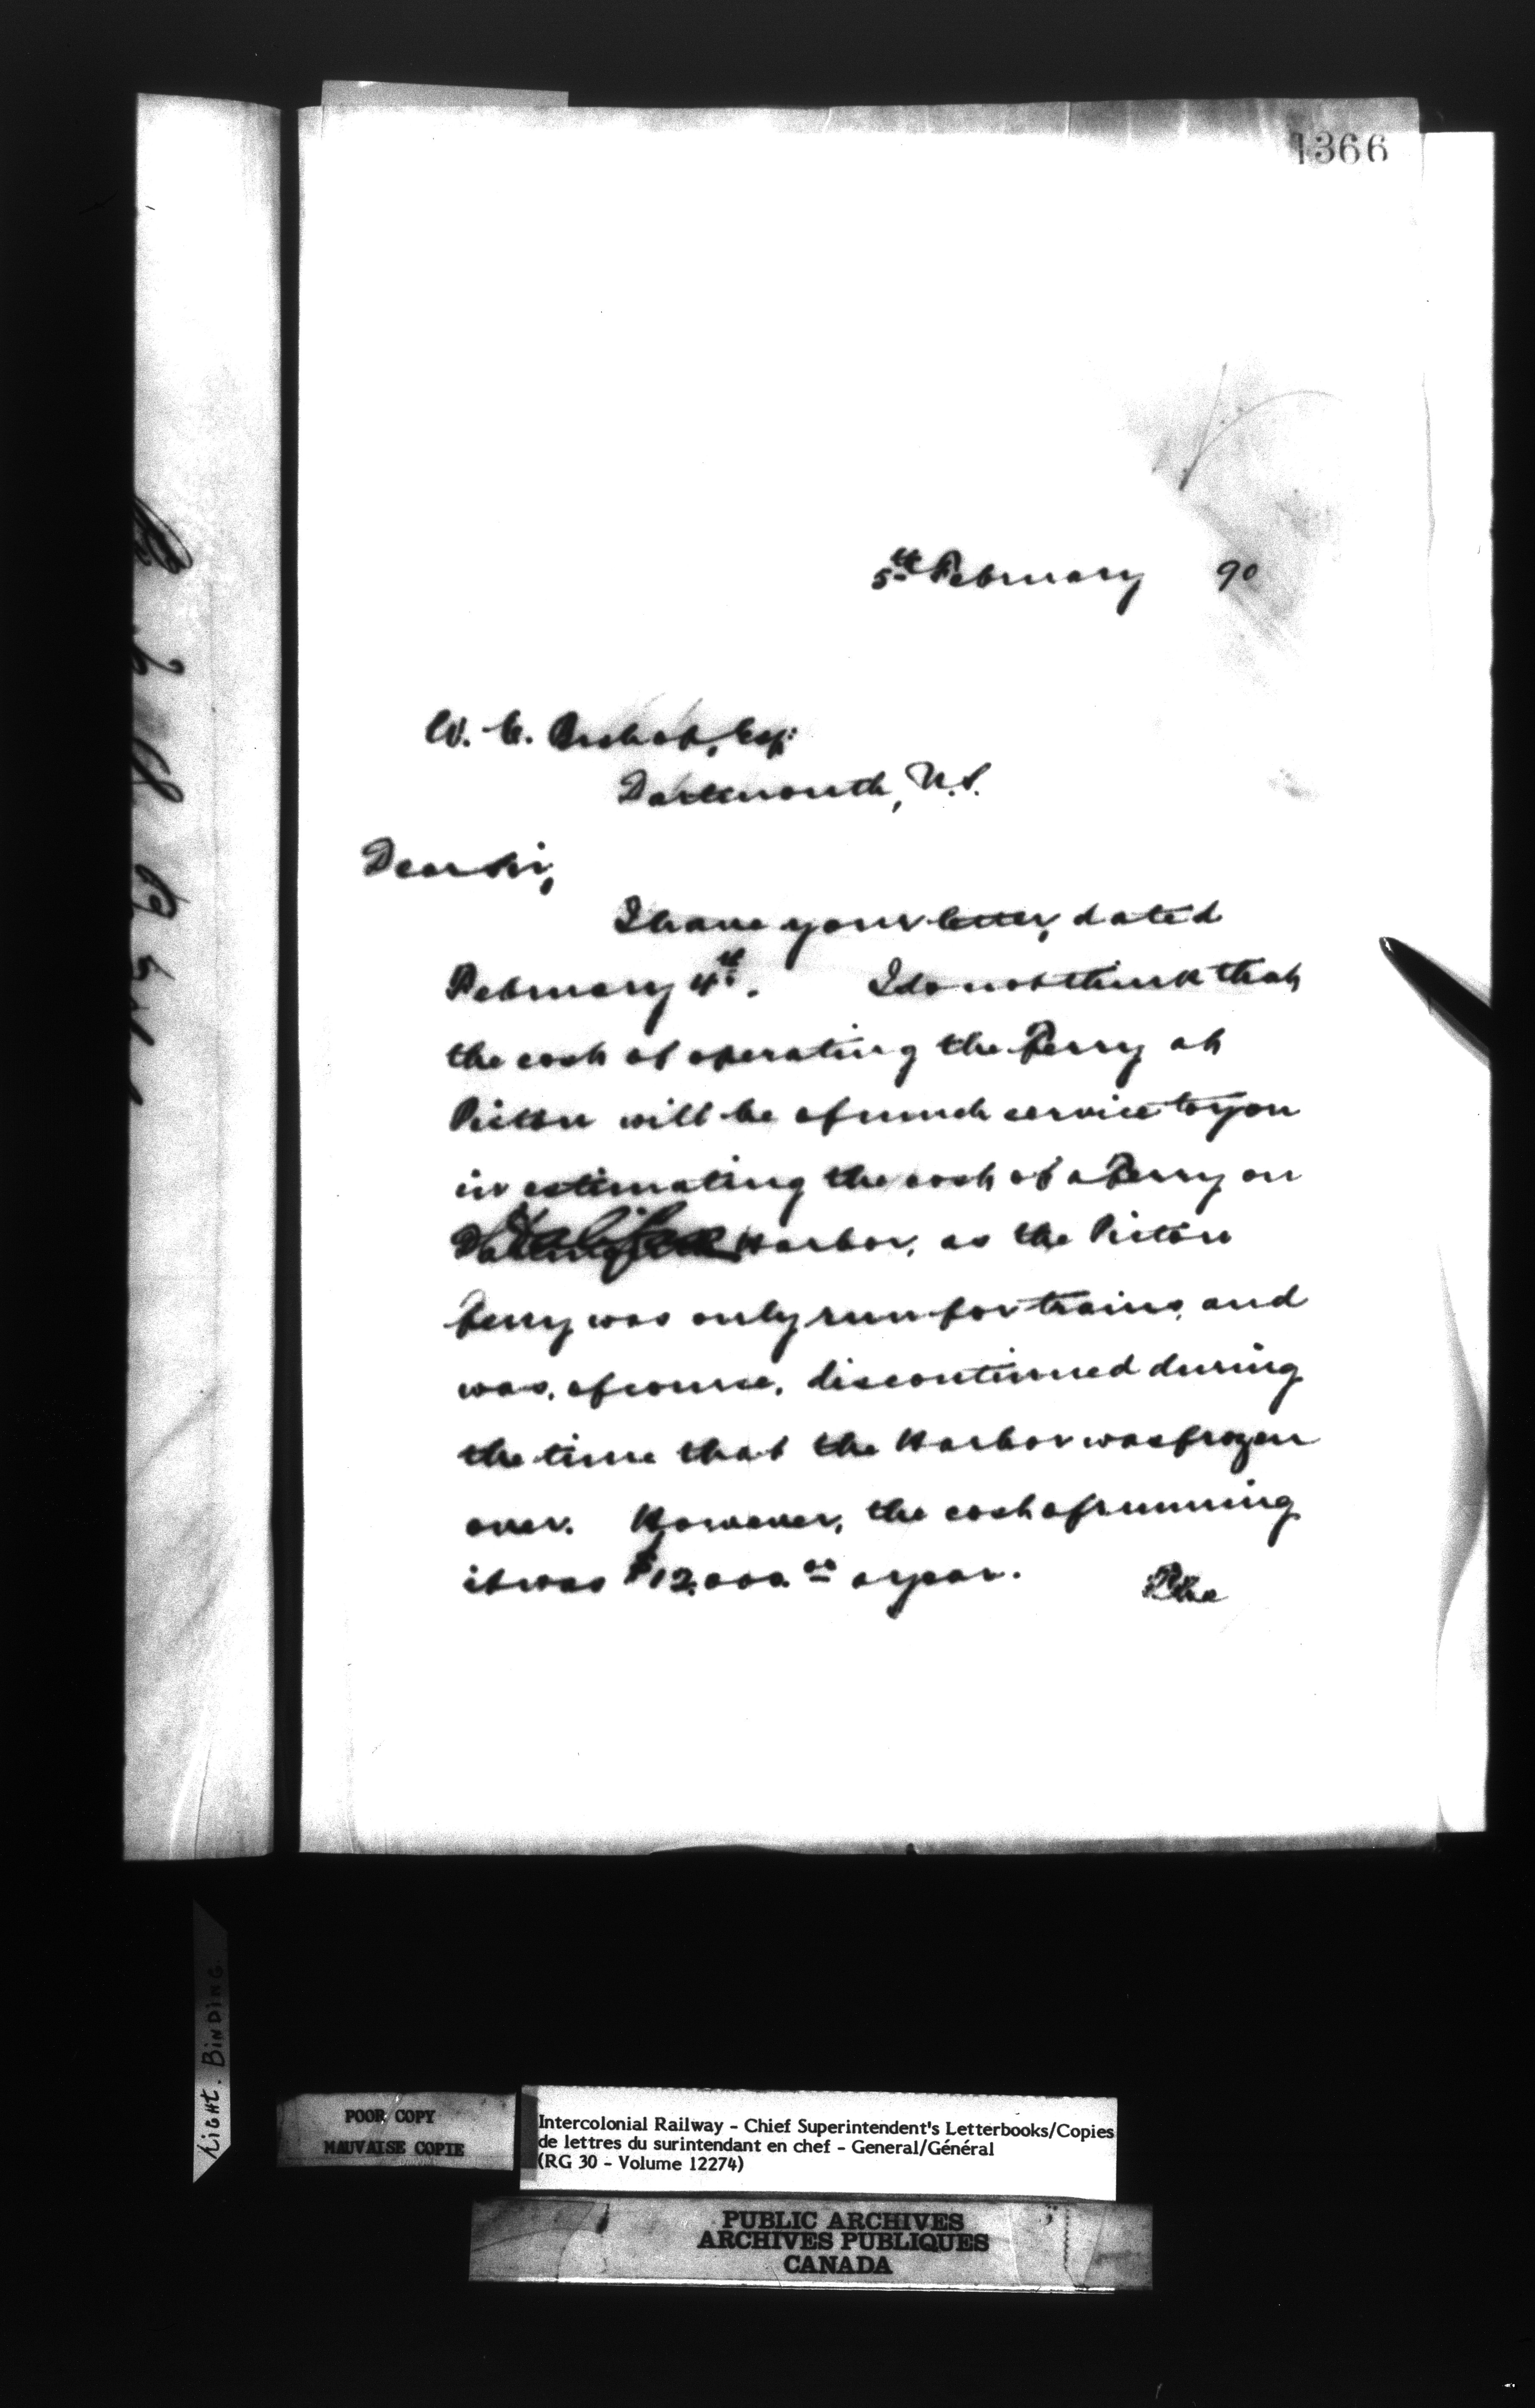 1366
5th February 90
W. C. Bishop, Esq:
Dartmouth, N.S.
Dear Sir,
I have your letter, dated
February 4th. I do not think that
the cost of operating the Ferry at
Pictou will be of much service to you
in estimating the cost of a Ferry on
Halifax Harbor, as the Pictou
ferry was only run for trains, and
was, of course, discontinued during
the time that the Harbor was frozen
over. However, the cost of running
it was $12,000.00 a year. The
TIGHT. BINDING.
POOR COPY
MAUVAISE COPIE
Intercolonial Railway - Chief Superintendent's Letterbooks/Copies
de lettres du surintendant en chef - General/Général
(RG 30 - Volume 12274)
PUBLIC ARCHIVES
ARCHIVES PUBLIQUES
CANADA